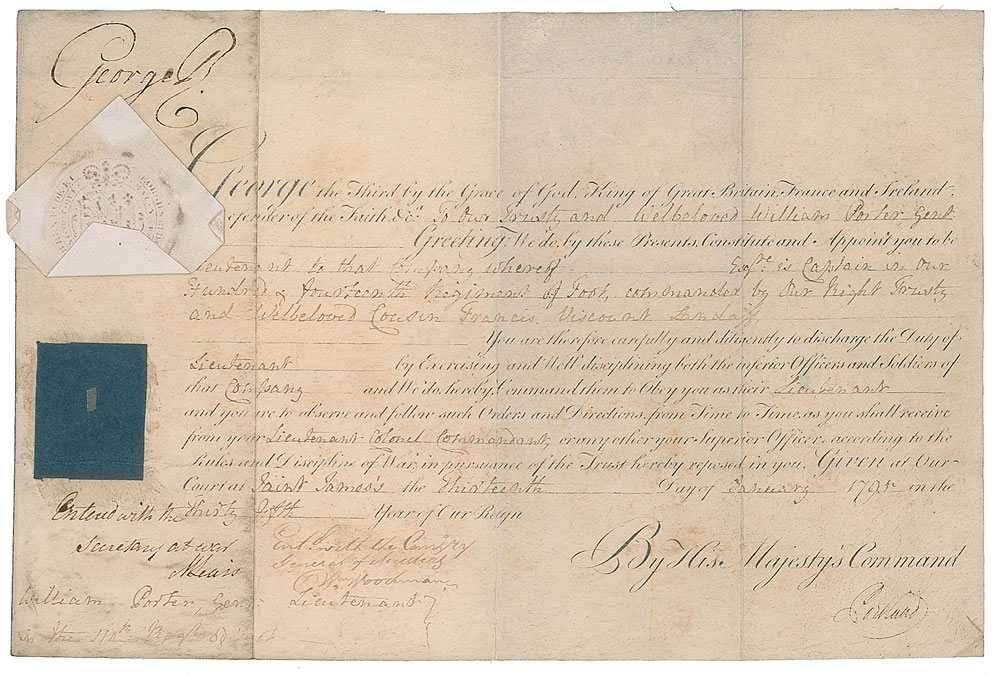 George R
George the Third by the Grace of God, King of Great Britain, France and Ireland
efender of the Faith &c. To Our Trusty and Welbeloved William Porter, Gent
Greeting: We do, by these Presents, Constitute and Appoint you to be
Lieutenant to that Company whereof Esqr. is Captain in Our
Hundred & fourteenth Regiment of Foot, commanded by Our Right Trusty
and Welbeloved Cousin Francis, Viscount Landaff
You are therefore carefully and diligently to discharge the Duty of
Lieutenant by Exercising and Well disciplining both the inferior Officers and Soldiers of
that Company and We do hereby Command them to Obey you as their Lieutenant
and you are to observe and follow such Orders and Directions, from Time to Time, as you shall receive
from your Lieutenant Colonel Commandant, or any other your Superior Officer, according to the
Rules and Discipline of War, in pursuance of the Trust hereby reposed in you. Given at Our
Court at Saint James's the Thirteenth Day of January 1795 in the
Thirty fifth Year of Our Reign
By His Majesty's Command
Portland
Enterd with the
Secretary at War
Entd. with the Comsry
General of Musters
Woodman
William Porter, Gent. Lieutenant
in the 114th Regt. of Foot